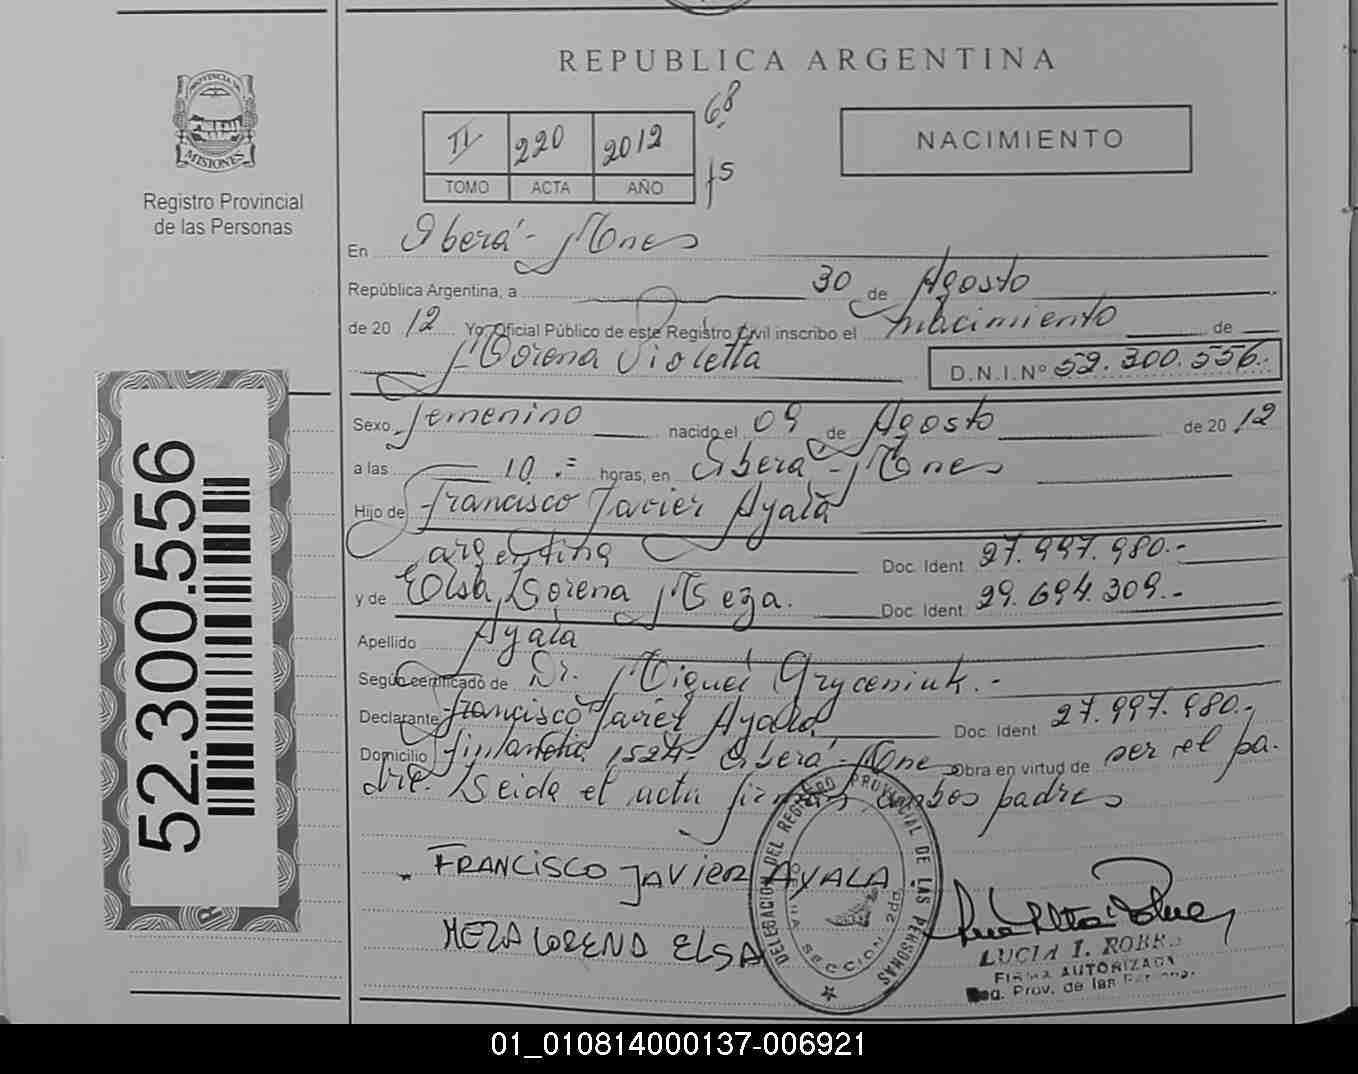 REPUBLICA ARGENTINA
PROVINCIA DE
MISIONES
Registro Provincial
de las Personas
II 220 2012 68 fs
TOMO ACTA AÑO
NACIMIENTO
En Oberá - Mnes
República Argentina, a 30 de Agosto
de 20 12 Yo Oficial Público de este Registro Civil inscribo el nacimiento de
Morena Violetta D.N.I.Nº 52.300.556.-
Sexo femenino nacido el 09 de Agosto de 20 12
a las 10.= horas, en Oberá - Mnes
Hijo de Francisco Javier Ayala
argentina Doc. Ident 27.997.980.-
y de Elsa Lorena Meza. Doc. Ident 29.694.309.-
Apellido Ayala
Según certificado de Dr. Miguel Gryceniuk.-
Declarante Francisco Javier Ayala Doc. Ident 27.997.980.-
Domicilio Finlandia 1524- Oberá - Mnes Obra en virtud de ser el pa-
dre. Leida el acta firman ambos padres
FRANCISCO JAVIER AYALA
MEZA LORENA ELSA
DELEGACION DEL REGISTRO PROVINCIAL DE LAS PERSONAS
SECCION 2da
LUCIA I. ROBR
FIRMA AUTORIZADA
Reg. Prov. de las Personas.
52.300.556
R
01_010814000137-006921